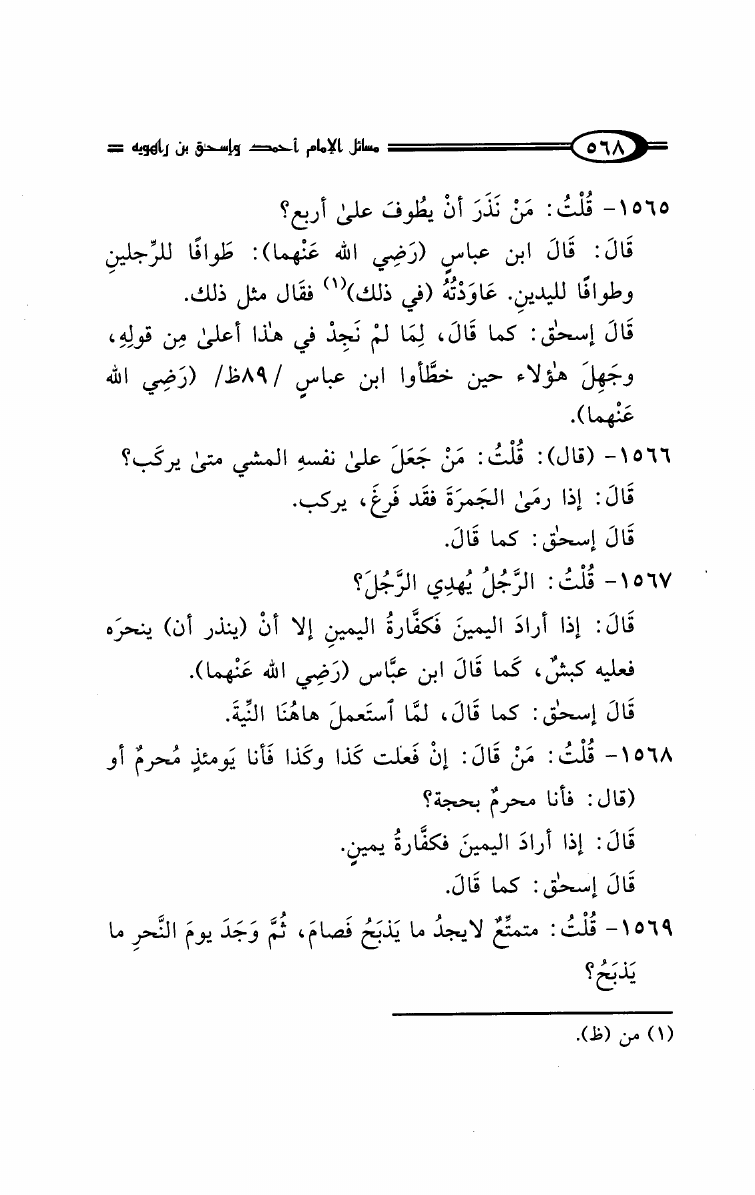 ٥٦٨ مسائل الإمام أحمد وإسحق بن راهويه
١٥٦٥- قُلْتُ: مَنْ نَذَرَ أنْ يطُوفَ علىٰ أربع؟
قَالَ: قَالَ ابن عباسٍ (رَضِي الله عَنْهما): طَوافًا للرِّجلينِ
وطوافًا لليدينِ. عَاوَدْتُهُ (في ذلك)(١) فقَال مثل ذلك.
قَالَ إسحٰق: كما قَالَ، لِمَا لمْ نَجِدْ في هٰذا أعلىٰ مِن قولِهِ،
وجَهِلَ هٰؤلاء حين خطَّأوا ابن عباسٍ /٨٩ظ/ (رَضِي الله
عَنْهما).
١٥٦٦- (قال): قُلْتُ: مَنْ جَعَلَ علىٰ نفسهِ المشي متىٰ يركَب؟
قَالَ: إذا رمَىٰ الجَمرَةَ فقَد فَرغَ، يركب.
قَالَ إسحٰق: كما قَالَ.
١٥٦٧- قُلْتُ: الرَّجُلُ يُهدِي الرَّجُلَ؟
قَالَ: إذا أرادَ اليمينَ فَكفَّارةُ اليمينِ إلا أنْ (ينذر أن) ينحرَه
فعليه كبشٌ، كَما قَالَ ابن عبَّاس (رَضِي الله عَنْهما).
قَالَ إسحٰق: كما قَالَ، لمَّا ٱستَعملَ هاهُنَا النِّيةَ.
١٥٦٨- قُلْتُ: مَنْ قَالَ: إنْ فَعلت كَذا وكَذا فَأنا يَومئذٍ مُحرمٌ أو
(قال: فأنا محرمٌ بحجة؟
قَالَ: إذا أرادَ اليمينَ فكفَّارةُ يمينٍ.
قَالَ إسحٰق: كما قَالَ.
١٥٦٩- قُلْتُ: متمتِّعٌ لايجدُ ما يَذبَحُ فَصامَ، ثُمَّ وَجَدَ يومَ النَّحرِ ما
يَذبَحُ؟
(١) من (ظ).